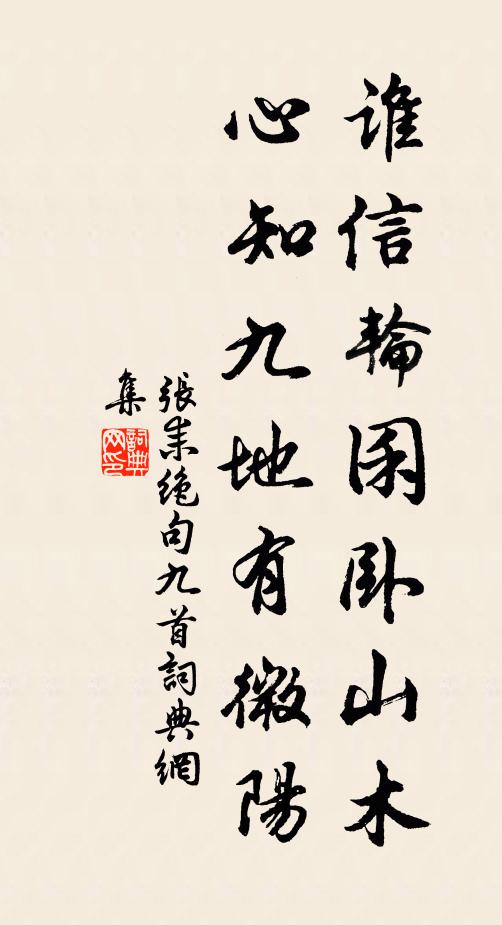 誰信輪囷臥山木
心知九地有微陽
張耒絕句九首詞典網
集
詞典
网印